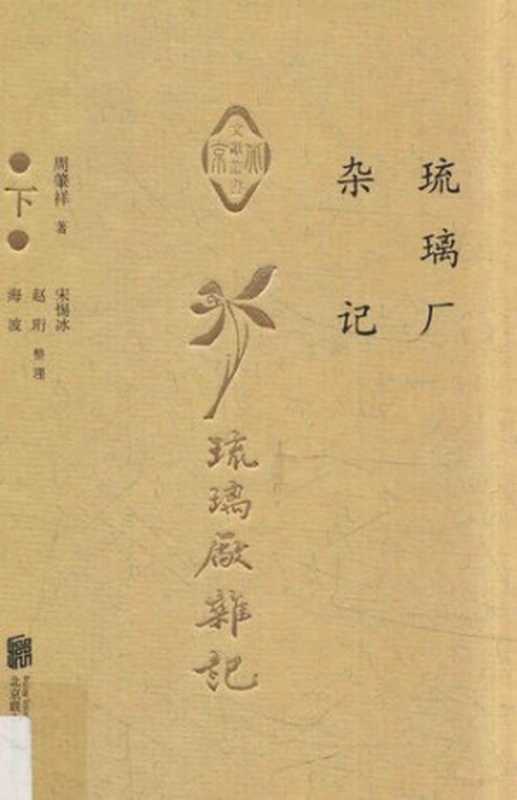 琉璃厂
杂记
北京
文献丛书
琉璃厰雜記
周肇祥 著
下
宋惕冰
赵珩 整理
海波
北京联